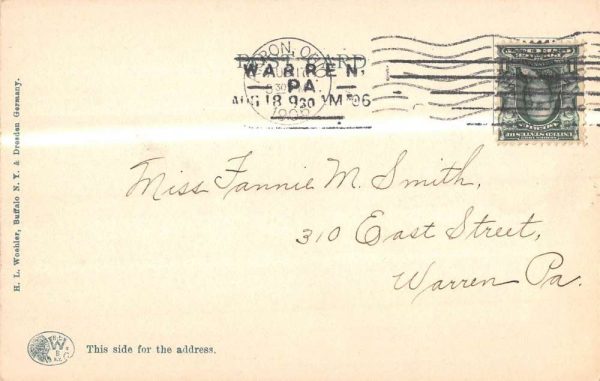 POST CARD
WARREN,
PA.
AUG 18 930 AM '06
Miss Fannie M. Smith,
310 East Street,
Warren Pa.
H. L. Woehler, Buffalo N. Y. & Dresden Germany.
This side for the address.